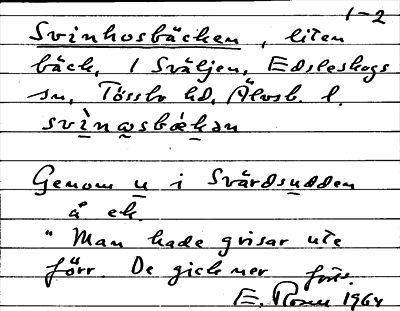 1-2
Svinhosbäcken, liten
bäck, i Sväljen, Edsleskogs
sn, Tössbo hd, Älvsb. l.
Genom u i Svärdsudden
å ek.
"Man hade grisar ute
förr. De gick ner
E. 1964